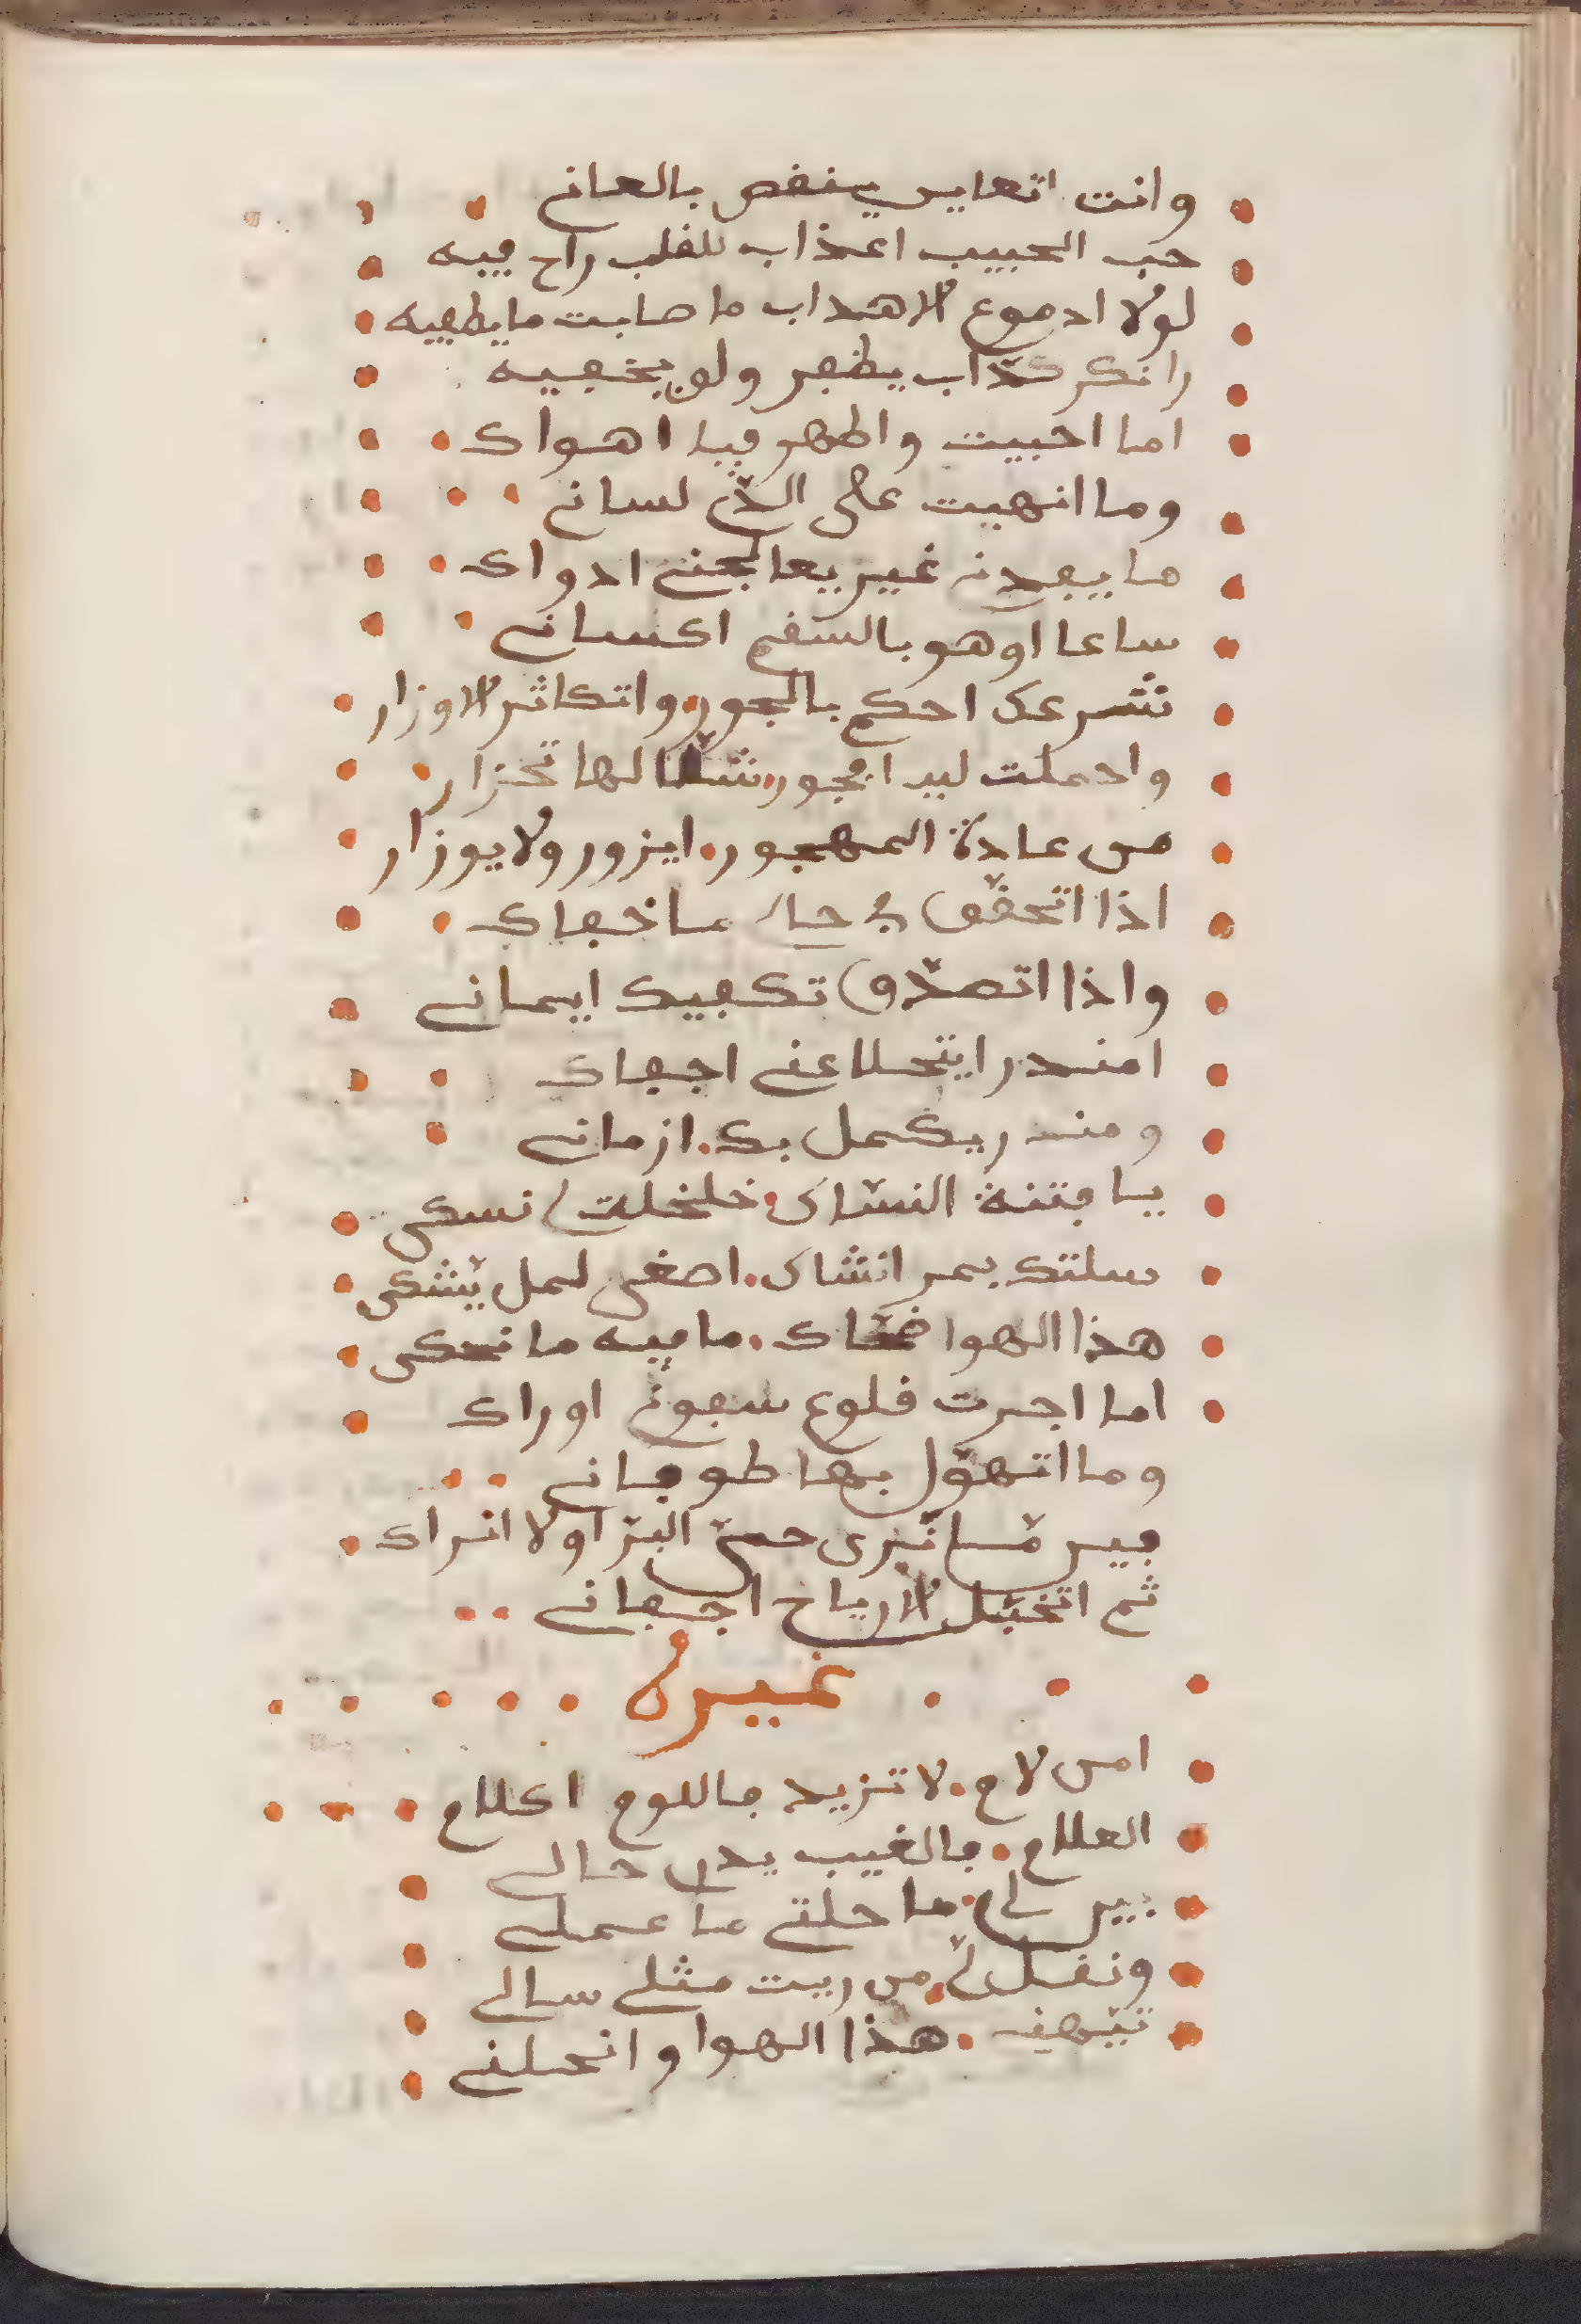 وانت اتعايس ينقص بالعاني
حب الحبيب اعذاب للقلب راح فيه
لولا ادموع الاهداب ما صابت ما يطفيه
رانكر كذاب يظهر ولو يخفيه
اما احبيت واظهر فيا اهواك
وما انهيت على الذم لساني
ما يفيدني غير يعالجني ادواك
ساعا اوهو بالسقم اكساني
نشرعك احكم بالجور واتكاثر الاوزار
وادملت ليد افجور لها تخزار
من عادة المهجور ايزور ولا يوزار
اذا اتحقق في حبك ما خفاك
واذا اتصدق تكفيك ايماني
امندرا يتحلا عني اجفاك
ومندر يكمل بك ازماني
يا فتنة النساك خلخلت نسكي
سلتك بمر انشاك اصغى لمل يشكي
هذا الهوا ضناك ما فيه ما نحكي
اما اجرت قلوع سفوني اوراك
وما اتهول بها طوفاني
فير مسا نرى حتى البر اولا انراك
ثم اتخبل الارياح اجفاني
غيره
امن لام لا تزيد فاللوم اكلام
العلام فالغيب يدر حالي
لي ما حلتي ما عملي
ونقل لي من ريت مثلي سالي
تيهني هذا الهوا وانحلني